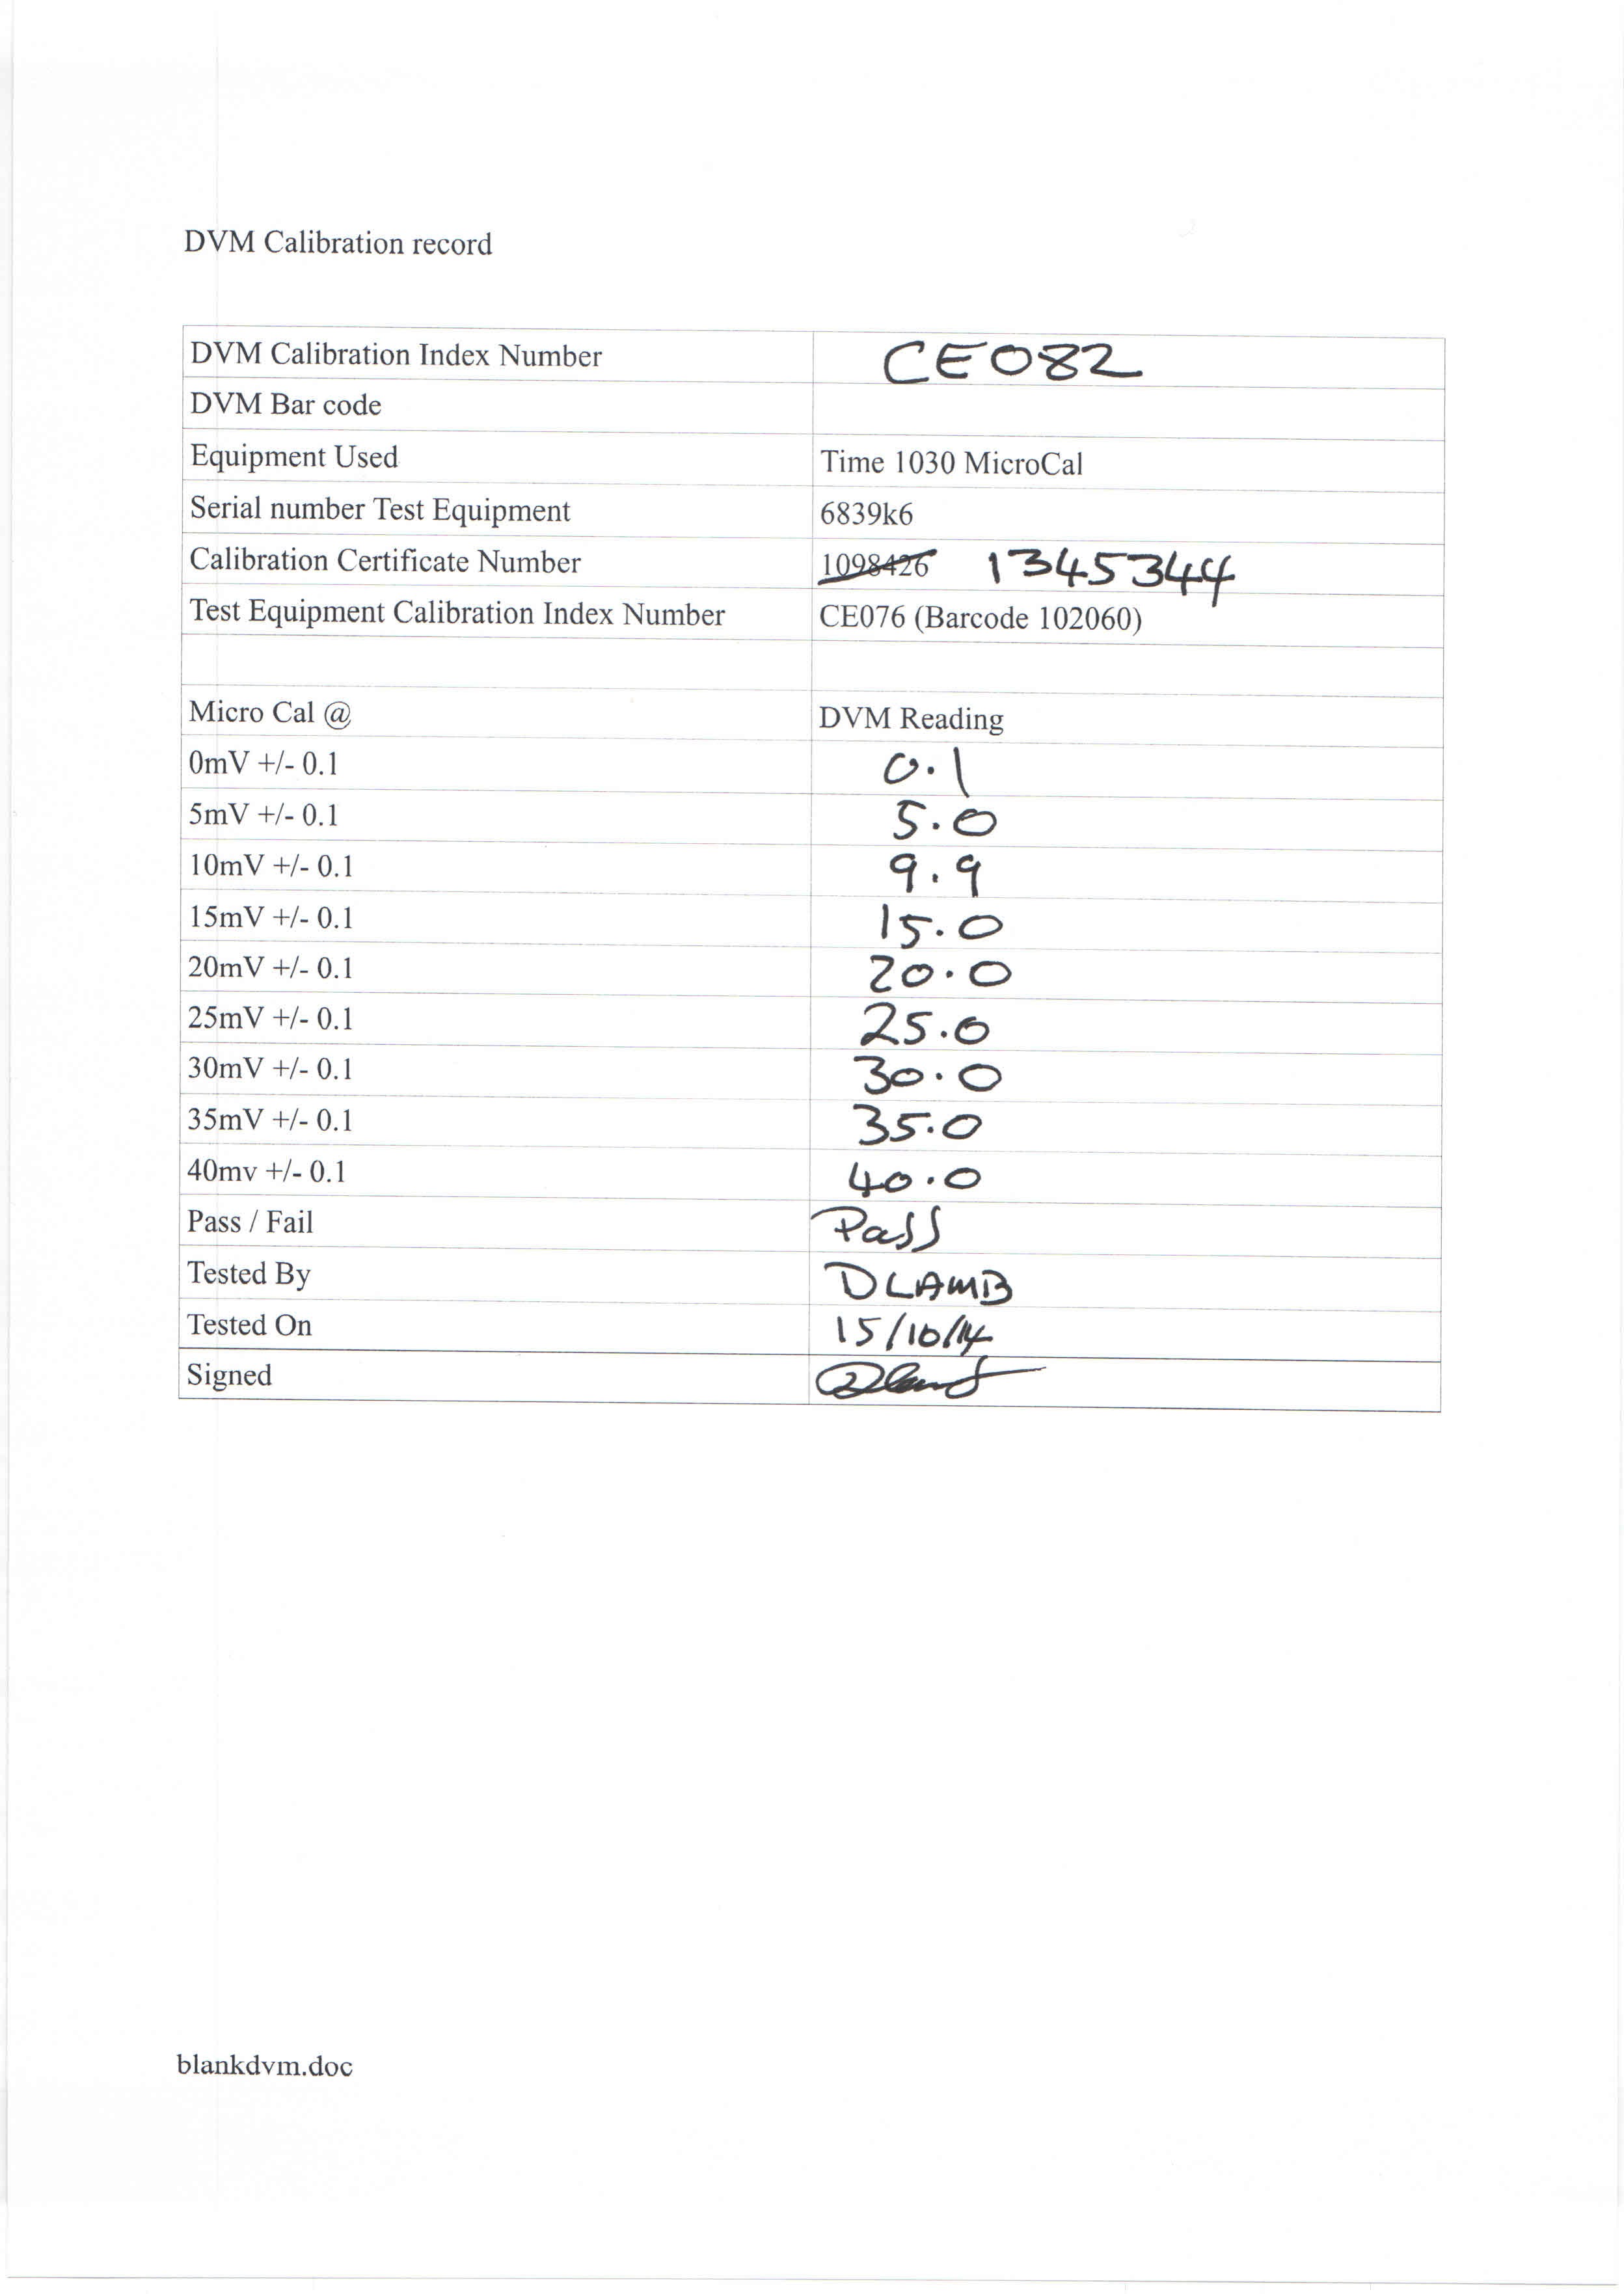 DVM Calibration record
DVM Calibration Index Number CE082
DVM Bar code
Equipment Used Time 1030 MicroCal
Serial number Test Equipment 6839k6
Calibration Certificate Number 1098426 1345344
Test Equipment Calibration Index Number CE076 (Barcode 102060)
Micro Cal @ DVM Reading
0mV +/- 0.1 0.1
5mV +/- 0.1 5.0
10mV +/- 0.1 9.9
15mV +/- 0.1 15.0
20mV +/- 0.1 20.0
25mV +/- 0.1 25.0
30mV +/- 0.1 30.0
35mV +/- 0.1 35.0
40mv +/- 0.1 40.0
Pass / Fail Pass
Tested By DLAMB
Tested On 15/10/14
Signed DLamb
blankdvm.doc